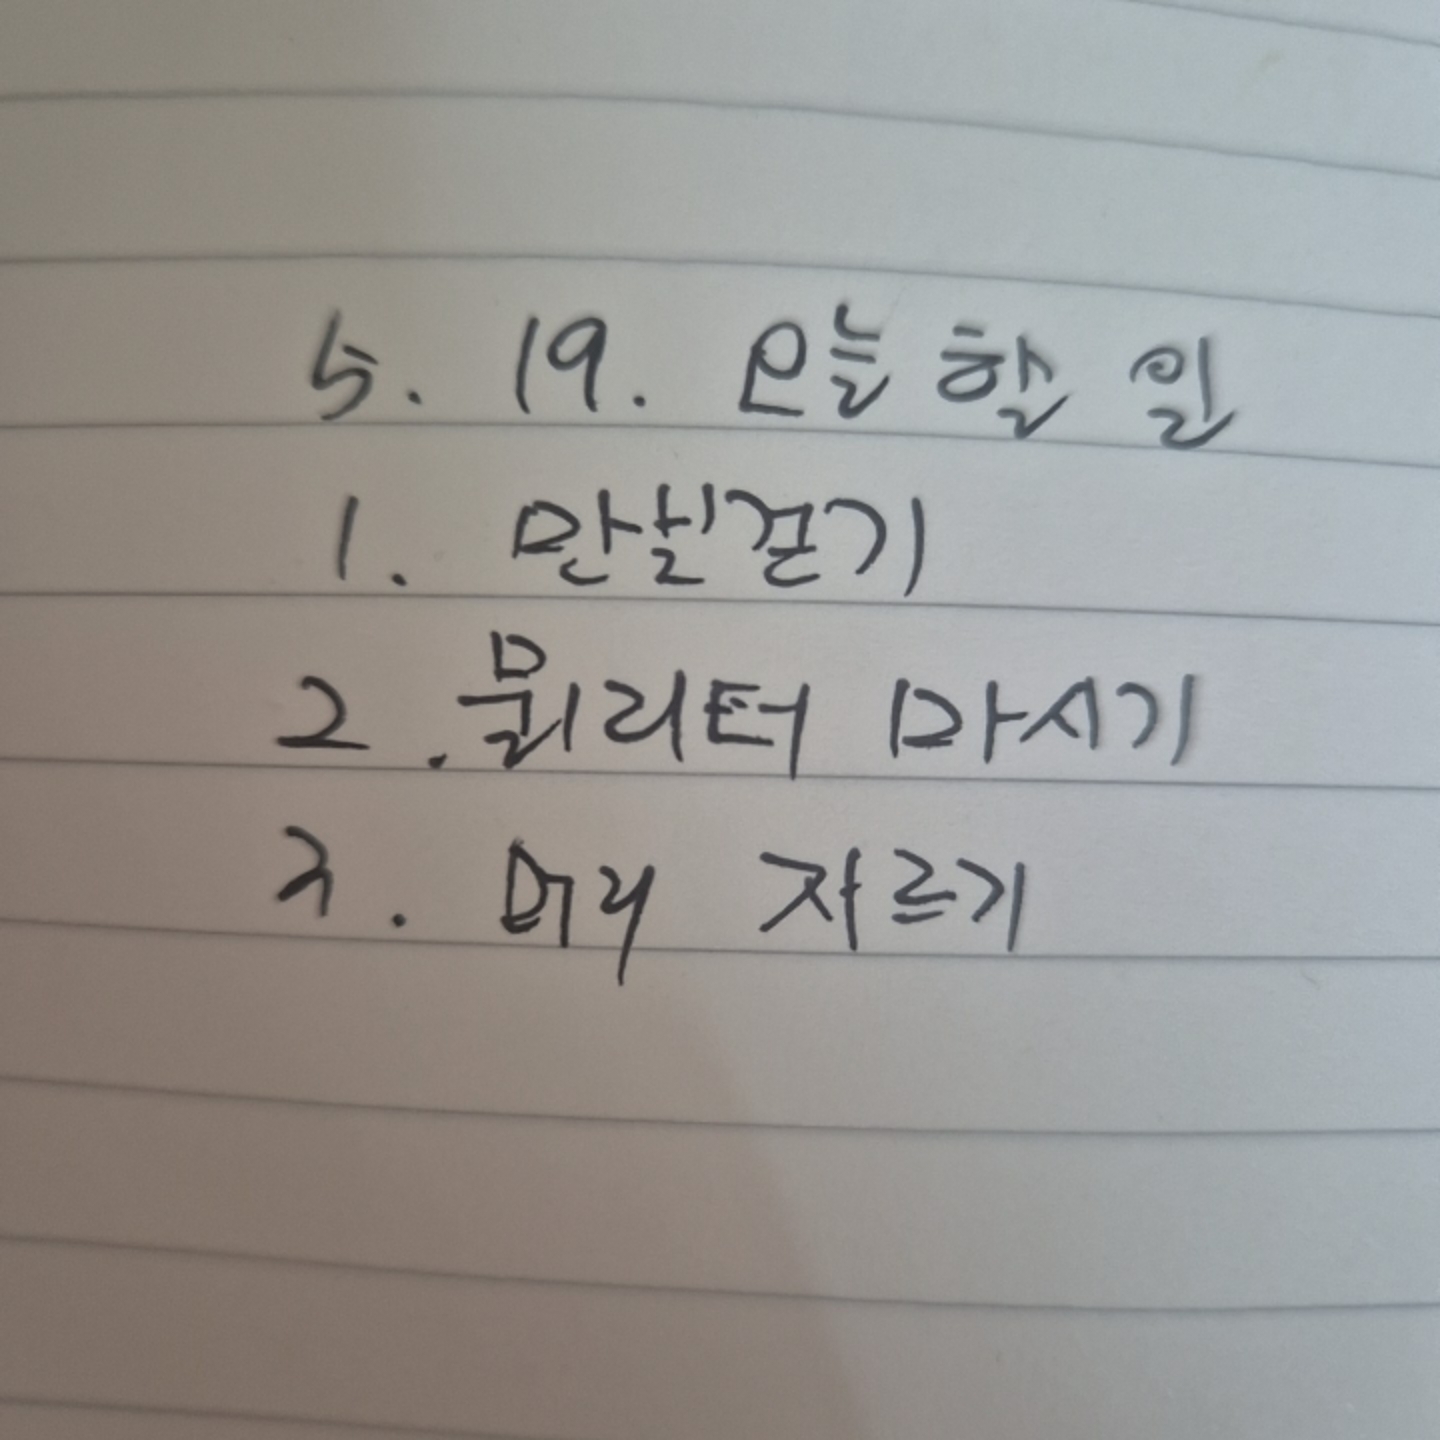 5. 19. 오늘 할 일
1. 만보걷기
2. 물1리터 마시기
3. 머리 자르기